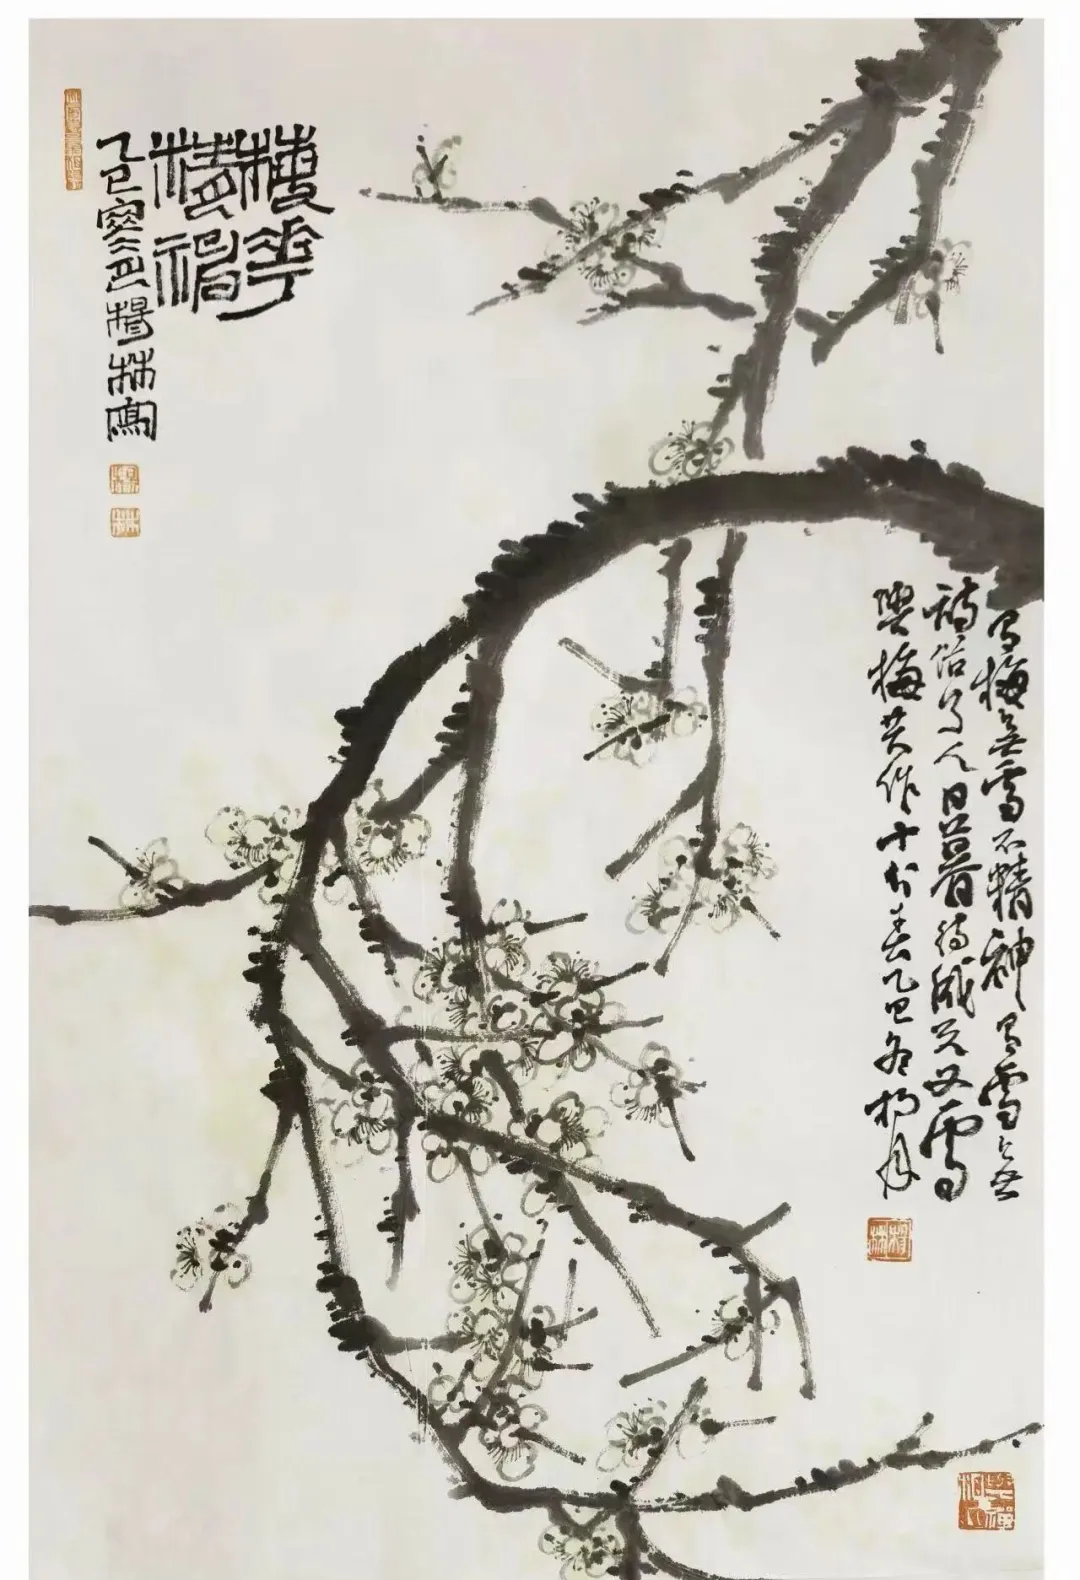 梅花
精神
乙巳
楊林寫
有梅無雪不精神有雪無
詩俗了人日暮詩成天又雪
與梅共作十分春乙巳冬
楊林